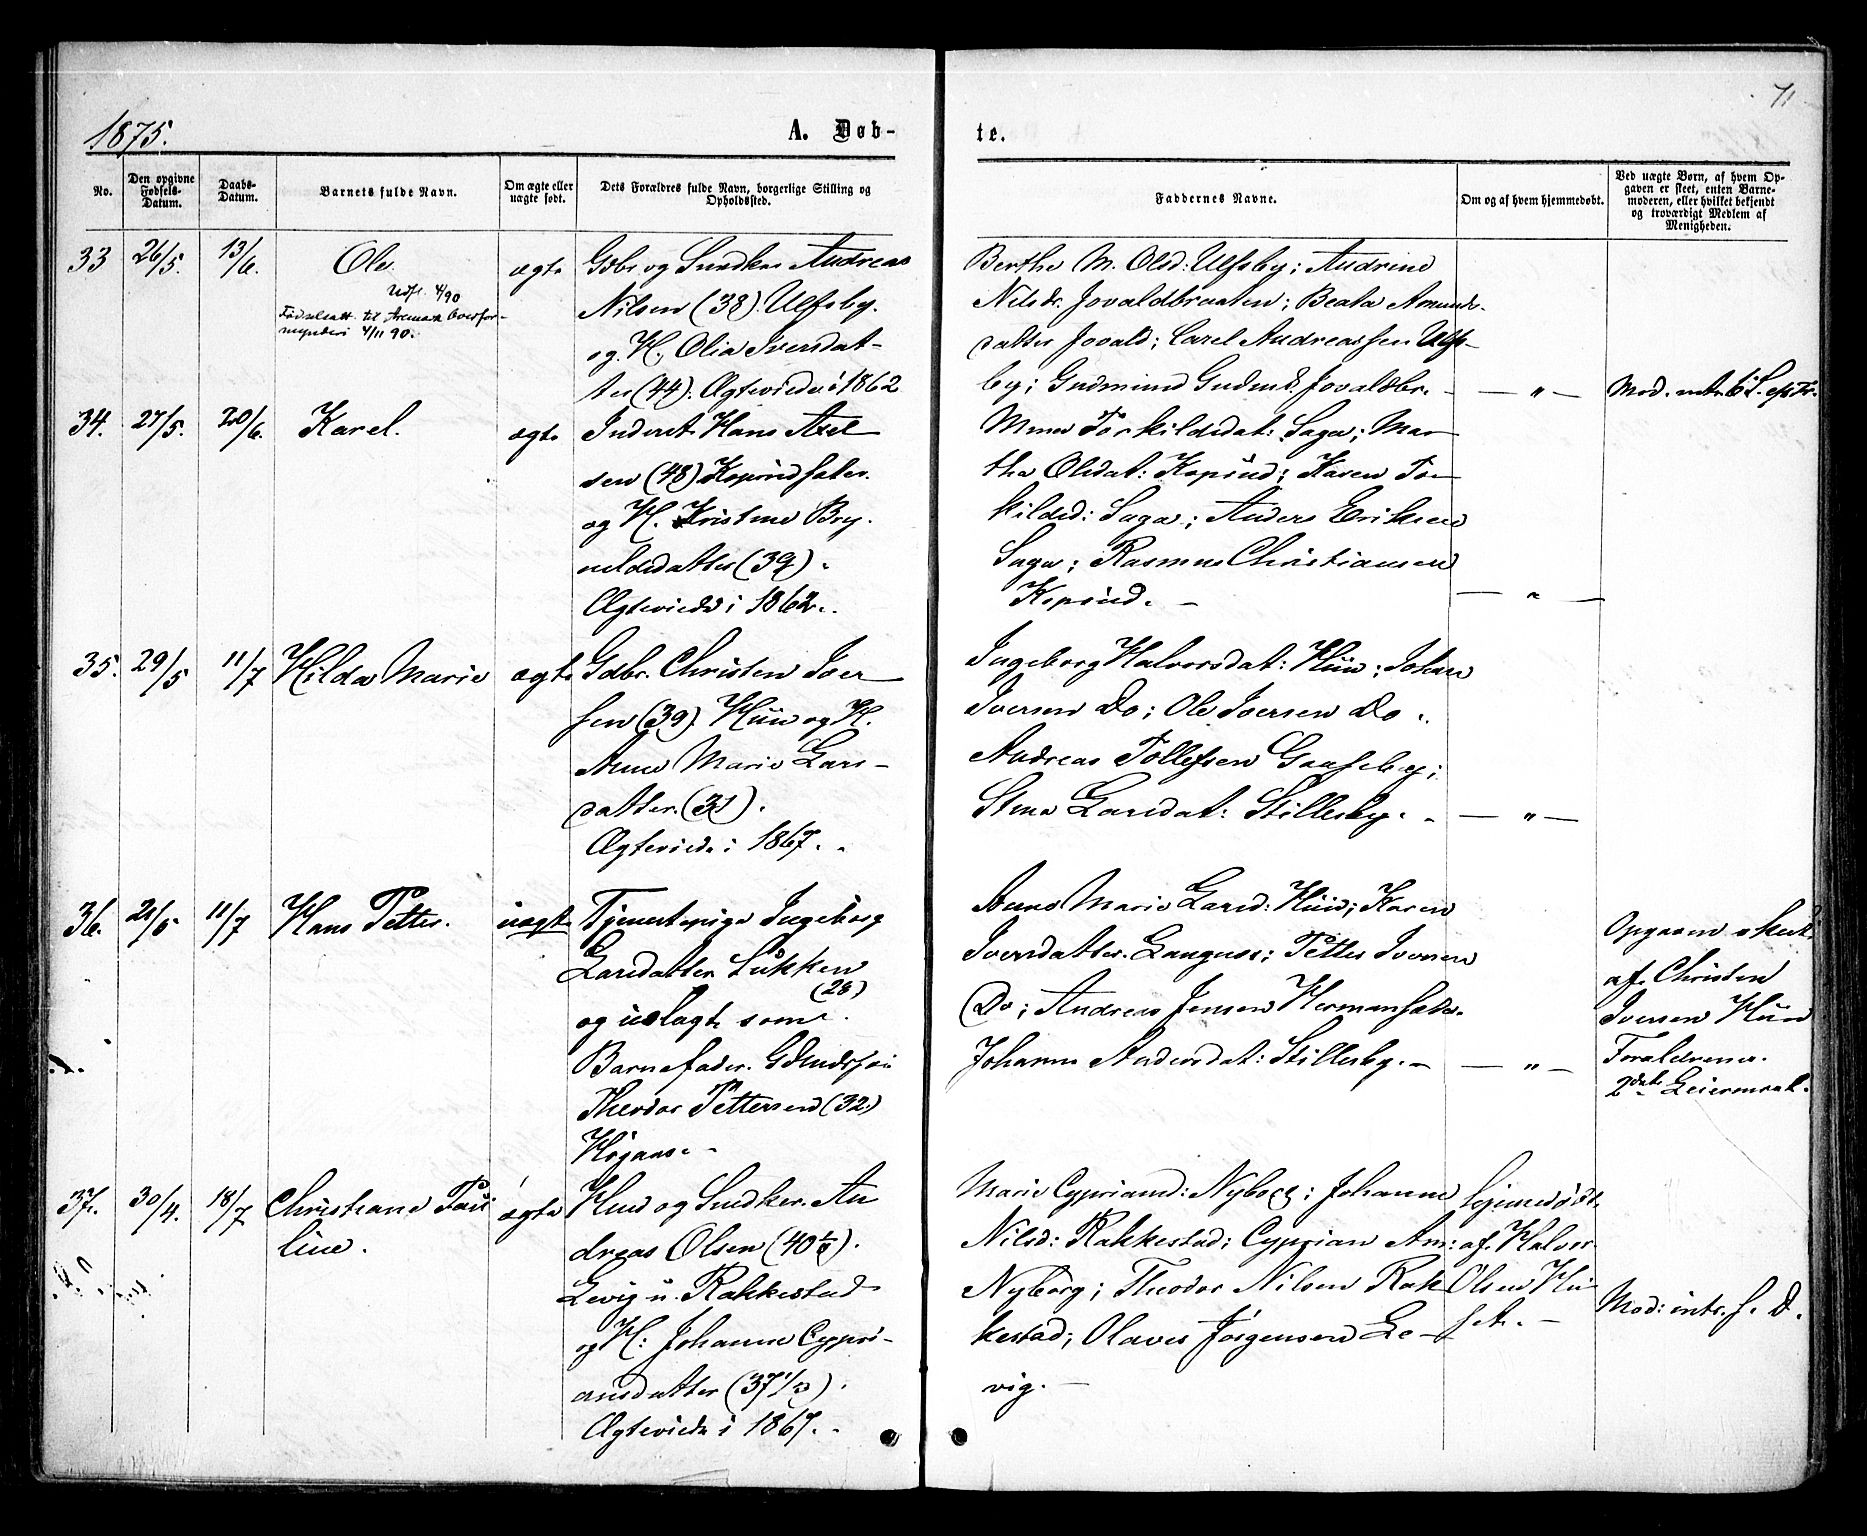 71
1875.
A. Døb-
te.
No.
Den opgivne Fødsels-Datum.
Daabs-Datum.
Barnets fulde Navn.
Om ægte eller uægte født.
Dets Forældres fulde Navn, borgerlige Stilling og Opholdssted.
Faddernes Navne.
Om og af hvem hjemmedøbt.
Ved uægte Børn, af hvem Opgaven er skeet, enten Barnemoderen, eller hvilket bekjendt og troværdigt Medlem af Menigheden.
33 26/5. 13/6. Ole ægte
Udst. 4/90
Fødselsatt. til Aremark Overfor-
mynderi 4/11 90.
Gdbr og Snedker Andreas
Nilsen (38) Ulfsby.
og H. Olia Iversdat-
ter (44). Ægteviede i 1862
Berthe M. Olsd: Ulfsby; Andrine
Nilsdr. Jovaldbraaten; Beata Amunds-
datter Jovald; Carel Andreassen Ulfs-
by; Gudmund Gudmd. Jovaldbr. - — " —
34. 27/5. 20/6. Karel. ægte
Inderst Hans Axel
sen (48) Kopsindsæter.
og H. Kristine Bry-
nildsdatter (39).
Ægteviede i 1862.
Mina Torkildsdat: Saga; Mar
tha Olsdat: Kopsind; Karen Tor
kildsd: Saga; Anders Eriksen
Saga; Rasmus Christiansen
Kopsind. — — " —
35. 29/5 11/7 Hilda Marie ægte
Gdbr. Christen Iver
sen (39) Hün og H.
Anne Marie Lars-
datter (31).
Ægteviede i 1867.
Ingeborg Halvorsdat: Hün; Johan
Iversen Do; Ole Iversen Do.
Andreas Tollefsen Gaaseby;
Stina Larsdat: Stillesby. — " —
36. 21/5 11/7 Hans Petter. üægte
Tjenestepige Ingeborg
Larsdatter Løkken
(28)
og üdlagt som
Barnefader. Gdmdssøn
Theodor Pettersen (32)
Høgaas.
Anne Marie Larsd: Hün; Karen
Iversdatter Languss; Petter Iversen
Do; Andreas Jensen Hermansæter.
Johanne Andersdat: Stillesby. — — " —
Opgaven skeet
af Christen
Iversen Hün
Forældrenes
2det Leiermaal.
37. 30/4. 18/7 Christiane Paü
line. ægte
Hmd og Snedker. An
dreas Olsen (40 ½).
Levig ü. Rakkestad
og H: Johanne Cypri-
ansdatter (37 ½).
Ægteviede i 1867.
Marie Cypriansd: Nyborg; Johanne
Nilsd: Rakkestad; Cyprian Am:
Nyborg; Theodor Nilsen Rak
kestad; Olaves Jørgensen Le-
vig. —
hjemedøbt
af Halvor
Olsen Hü
set. —
Mod: intr. f. D.